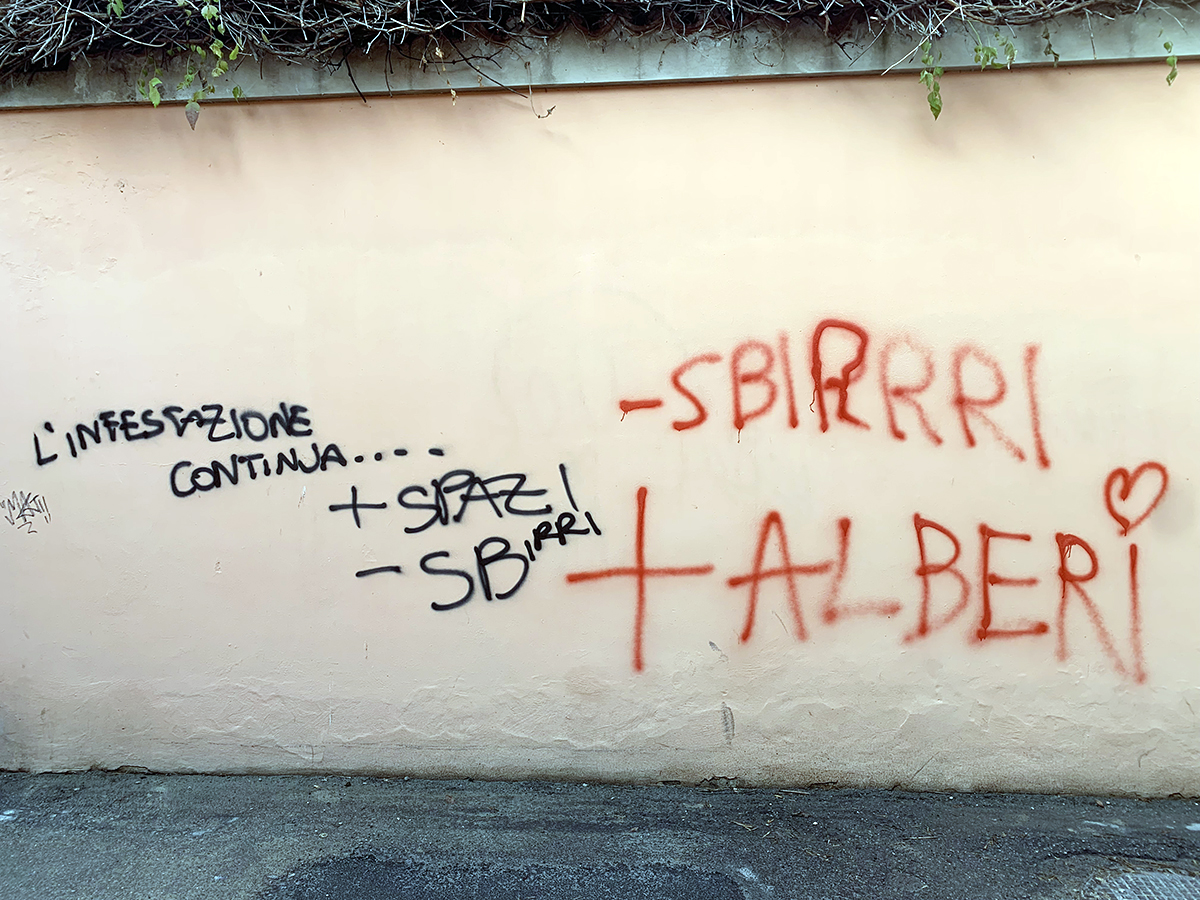 L'INFESTAZIONE
CONTINUA....
+ SPAZI
- SBIRRI
- SBIRRRI
+ ALBERI